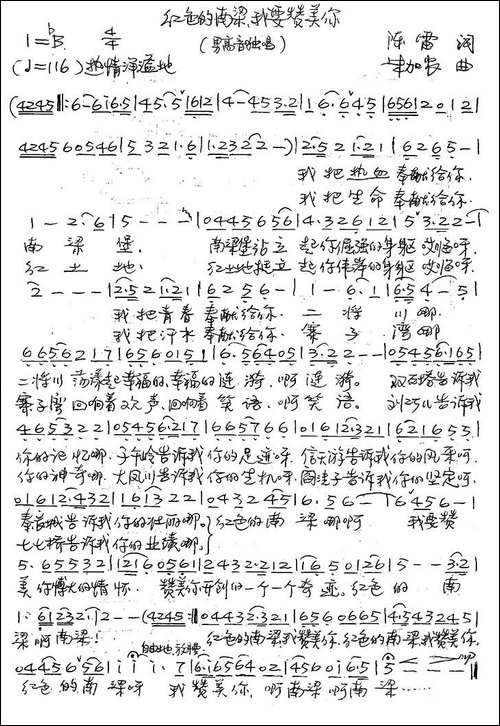 红色的南梁,我要赞美你
1=ᵇB 4/4 (男高音独唱) 陈雷 词
(♩=116) 热情洋溢地 曲
(4245‖:6-6i65|45·5ˇ1612|4-453·2|16·645|6561201 2|
4245605461|5321·6|1·2322-)|2·521·21|6265-|
我把热血奉献给你.
我把生命奉献给你.
1-2·6|5---|0445656|4·32612|5ˇ3·22-|
南梁堡. 南梁堡站立起你倔强的身躯 哎哟呀.
红土地. 红土地挺立起你伟岸的身躯 哎哟呀.
2---|2·521·21|6256-|1-6·1|6·54-5|
我把青春奉献给你. 二将川哪
我把汗水奉献给你. 寨子湾哪
6656217|1656015 1|6·56405|3·22--|05456·165|
二将川荡漾起幸福的,幸福的涟漪,啊涟漪. 双石塔告诉我
寨子湾回响着欢声,回响着笑语,啊笑语. 刘巧儿告诉我
465322|05456·217|6657766|01612·321|621655|
你的记忆哪.子午岭告诉我你的足迹呀.信天游告诉我你的风采呀.
你的神奇哪.大凤川告诉我你的生机呀.阎洼子告诉我你的坚定呀.
01612·432|161322|0432451|6·56-|6456-|
告诉我你的壮丽哪. 红色的南梁哪啊 我要赞
七七桥告诉我你的业绩哪.
5·65532|12160561|2432·2121|165 0126|5--3·2|
美你博大的情怀. 赞美你开创的一个一个奇迹.红色的 南
1·61232·12--(4245:‖04432·321|6560665|4·543245|
梁啊南梁! 红色的南梁我赞美你,红色的南梁我赞美你.
自由地,放慢
0445656|i i i·7|6·i656402|4560i6·5|5---‖ mp
红色的南梁呀 我赞美你,啊南梁啊南梁……